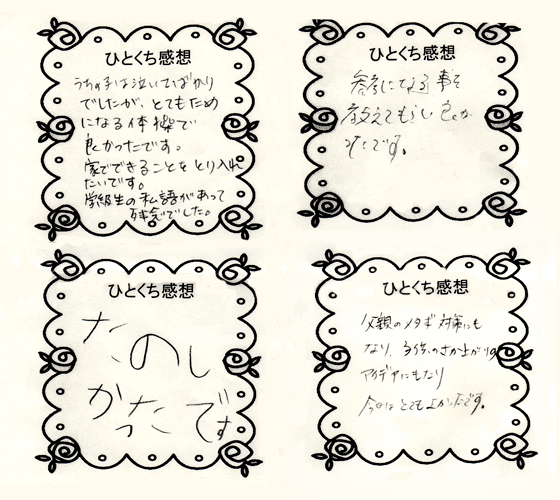 ひとくち感想
うちの子は泣いてばかり
でしたが、とてもため
になる体操で
良かったです。
家でできることをとり入れ
たいです。
学級生の私語があって
残念でした。
ひとくち感想
参考になる事を
教えてもらい良か
ったです。
ひとくち感想
たのし
かったです
ひとくち感想
父親のメタボ対策にも
なり、子供のさか上がりの
アイデアにもなり
今日はとてもよかったです。